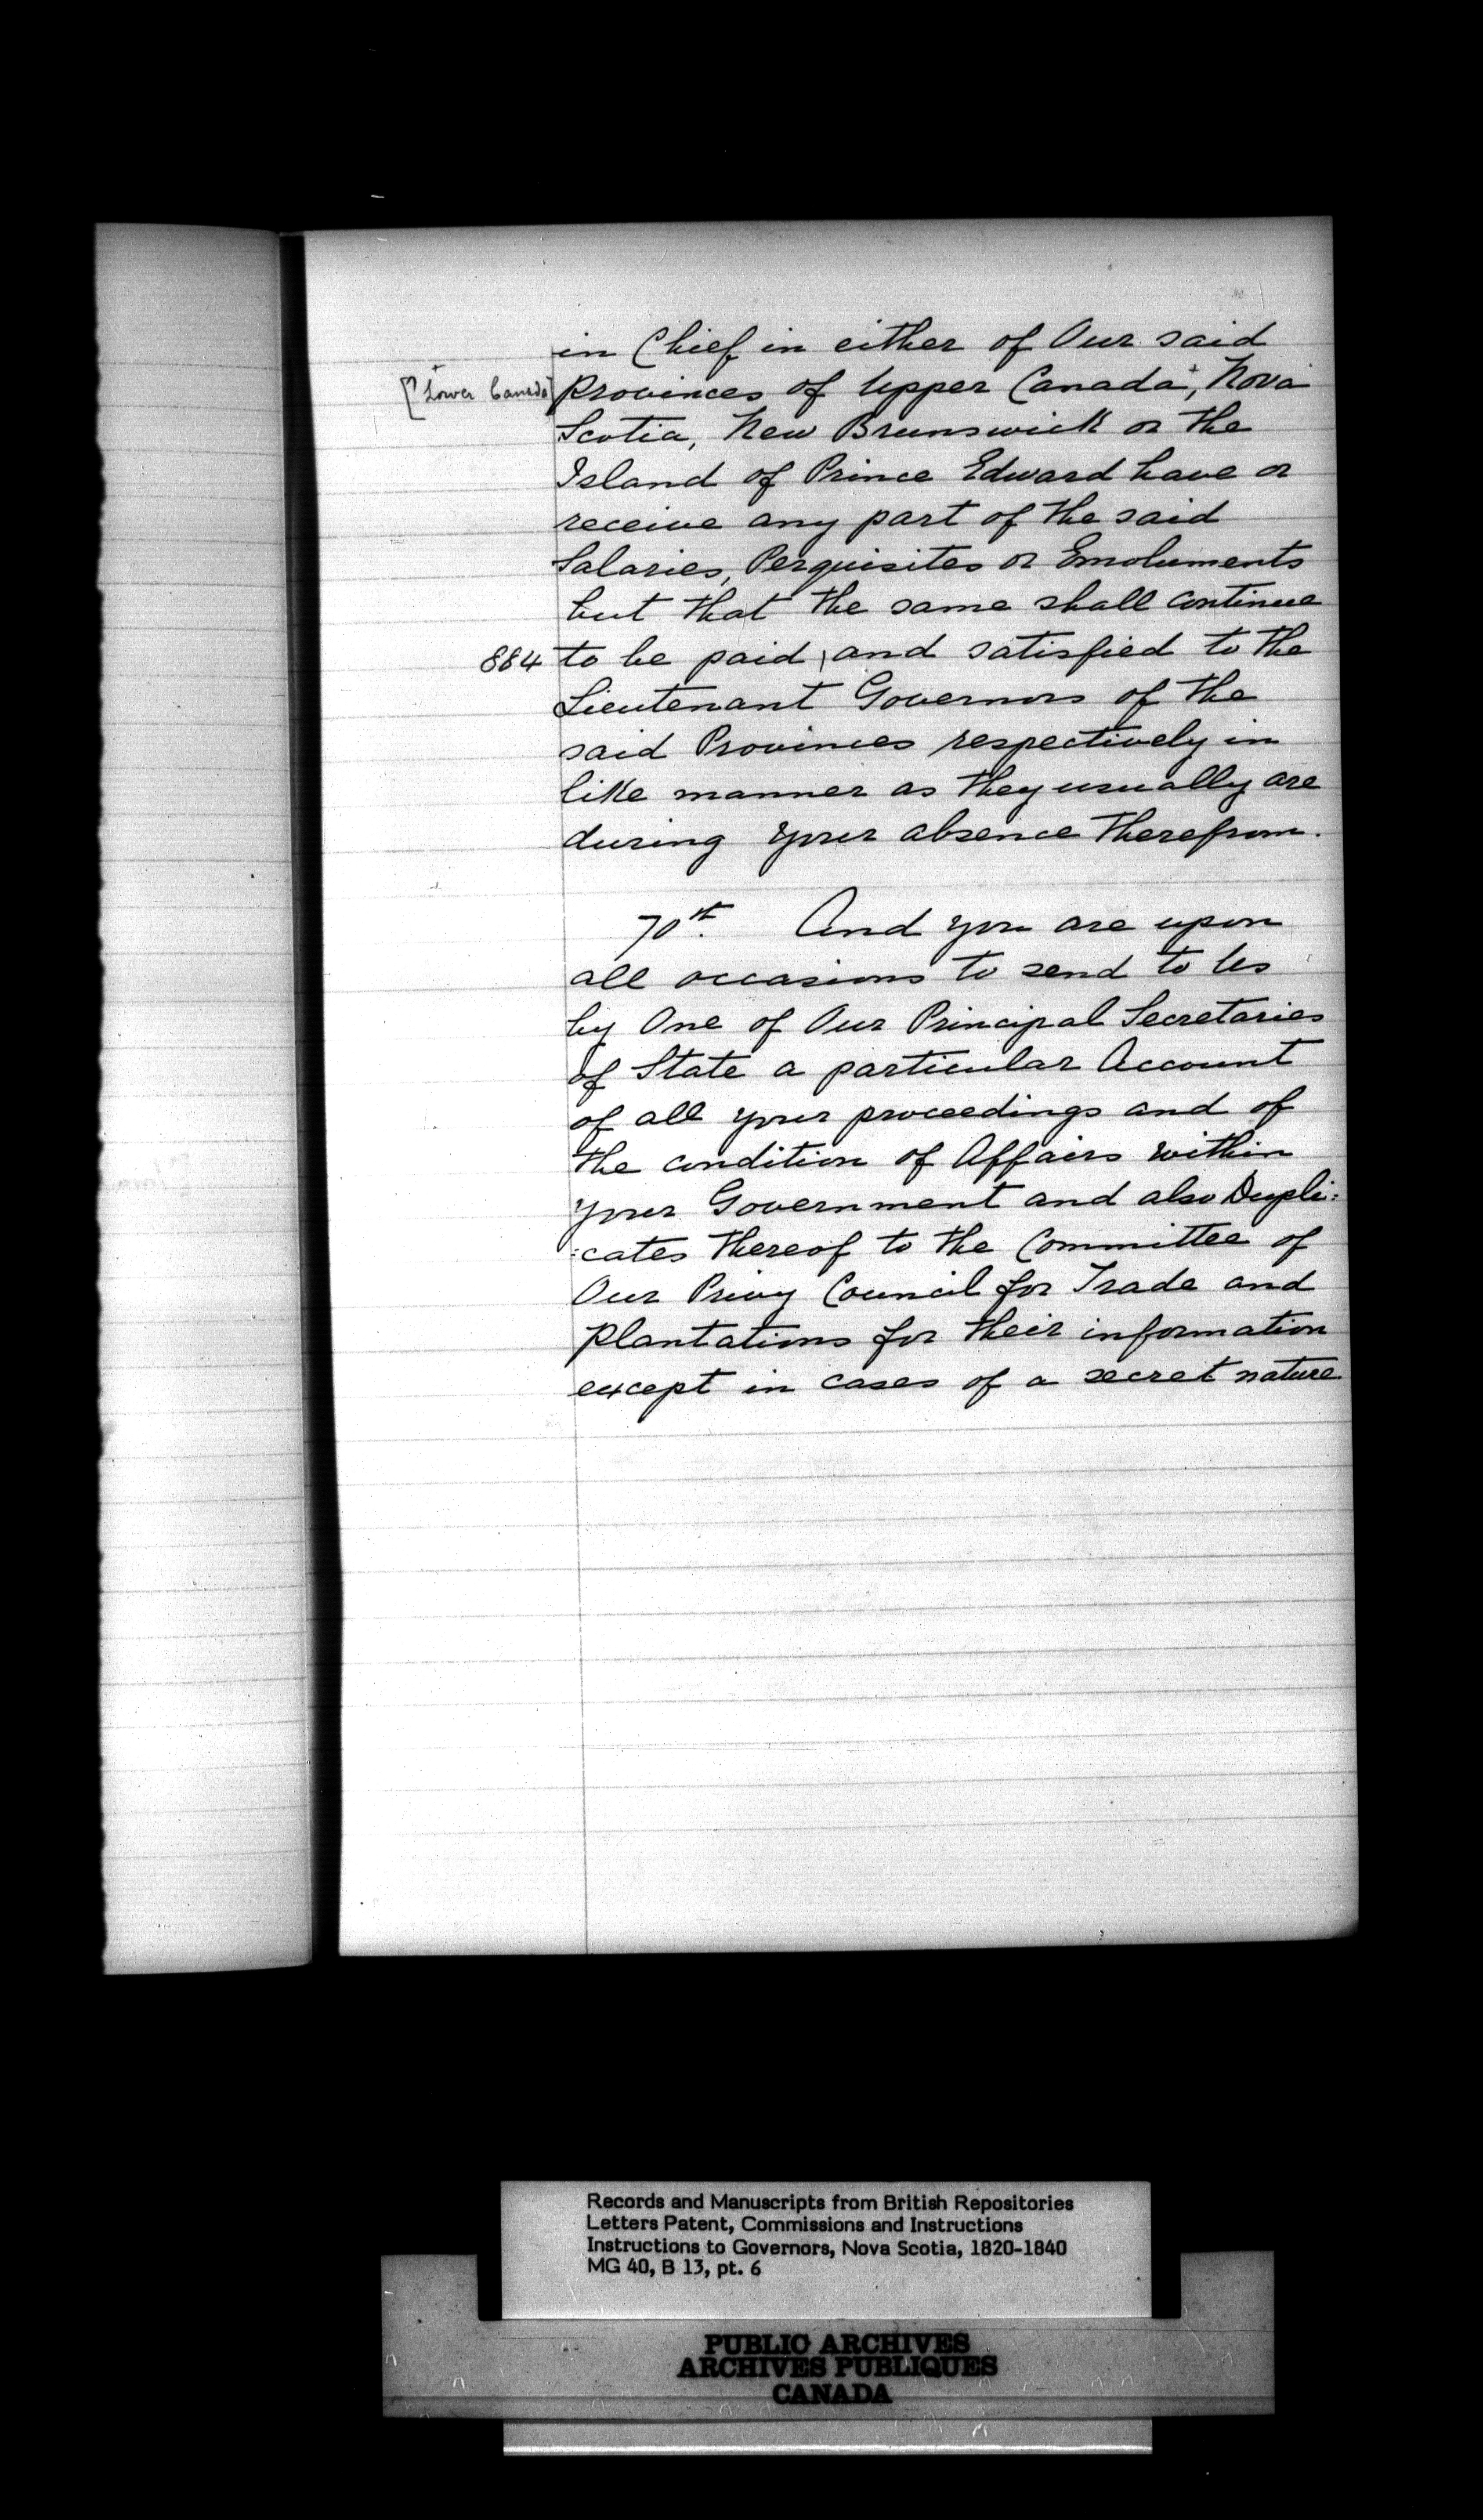 in Chief in either of Our said
[? +Lower Canada] Provinces of Upper Canada+, Nova
Scotia, New Brunswick or the
Island of Prince Edward have or
receive any part of the said
Salaries, Perquisites or Emoluments
but that the same shall continue
884 to be paid \ and satisfied to the
Lieutenant Governors of the
said Provinces respectively in
like manner as they usually are
during your absence therefrom.
70th. And you are upon
all occasions to send to Us
by One of Our Principal Secretaries
of State a particular Account
of all your proceedings and of
the condition of Affairs within
your Government and also Dupli:
:cates thereof to the Committee of
Our Privy Council for Trade and
Plantations for their information
except in cases of a secret nature
Records and Manuscripts from British Repositories
Letters Patent, Commissions and Instructions
Instructions to Governors, Nova Scotia, 1820-1840
MG 40, B 13, pt. 6
PUBLIC ARCHIVES
ARCHIVES PUBLIQUES
CANADA